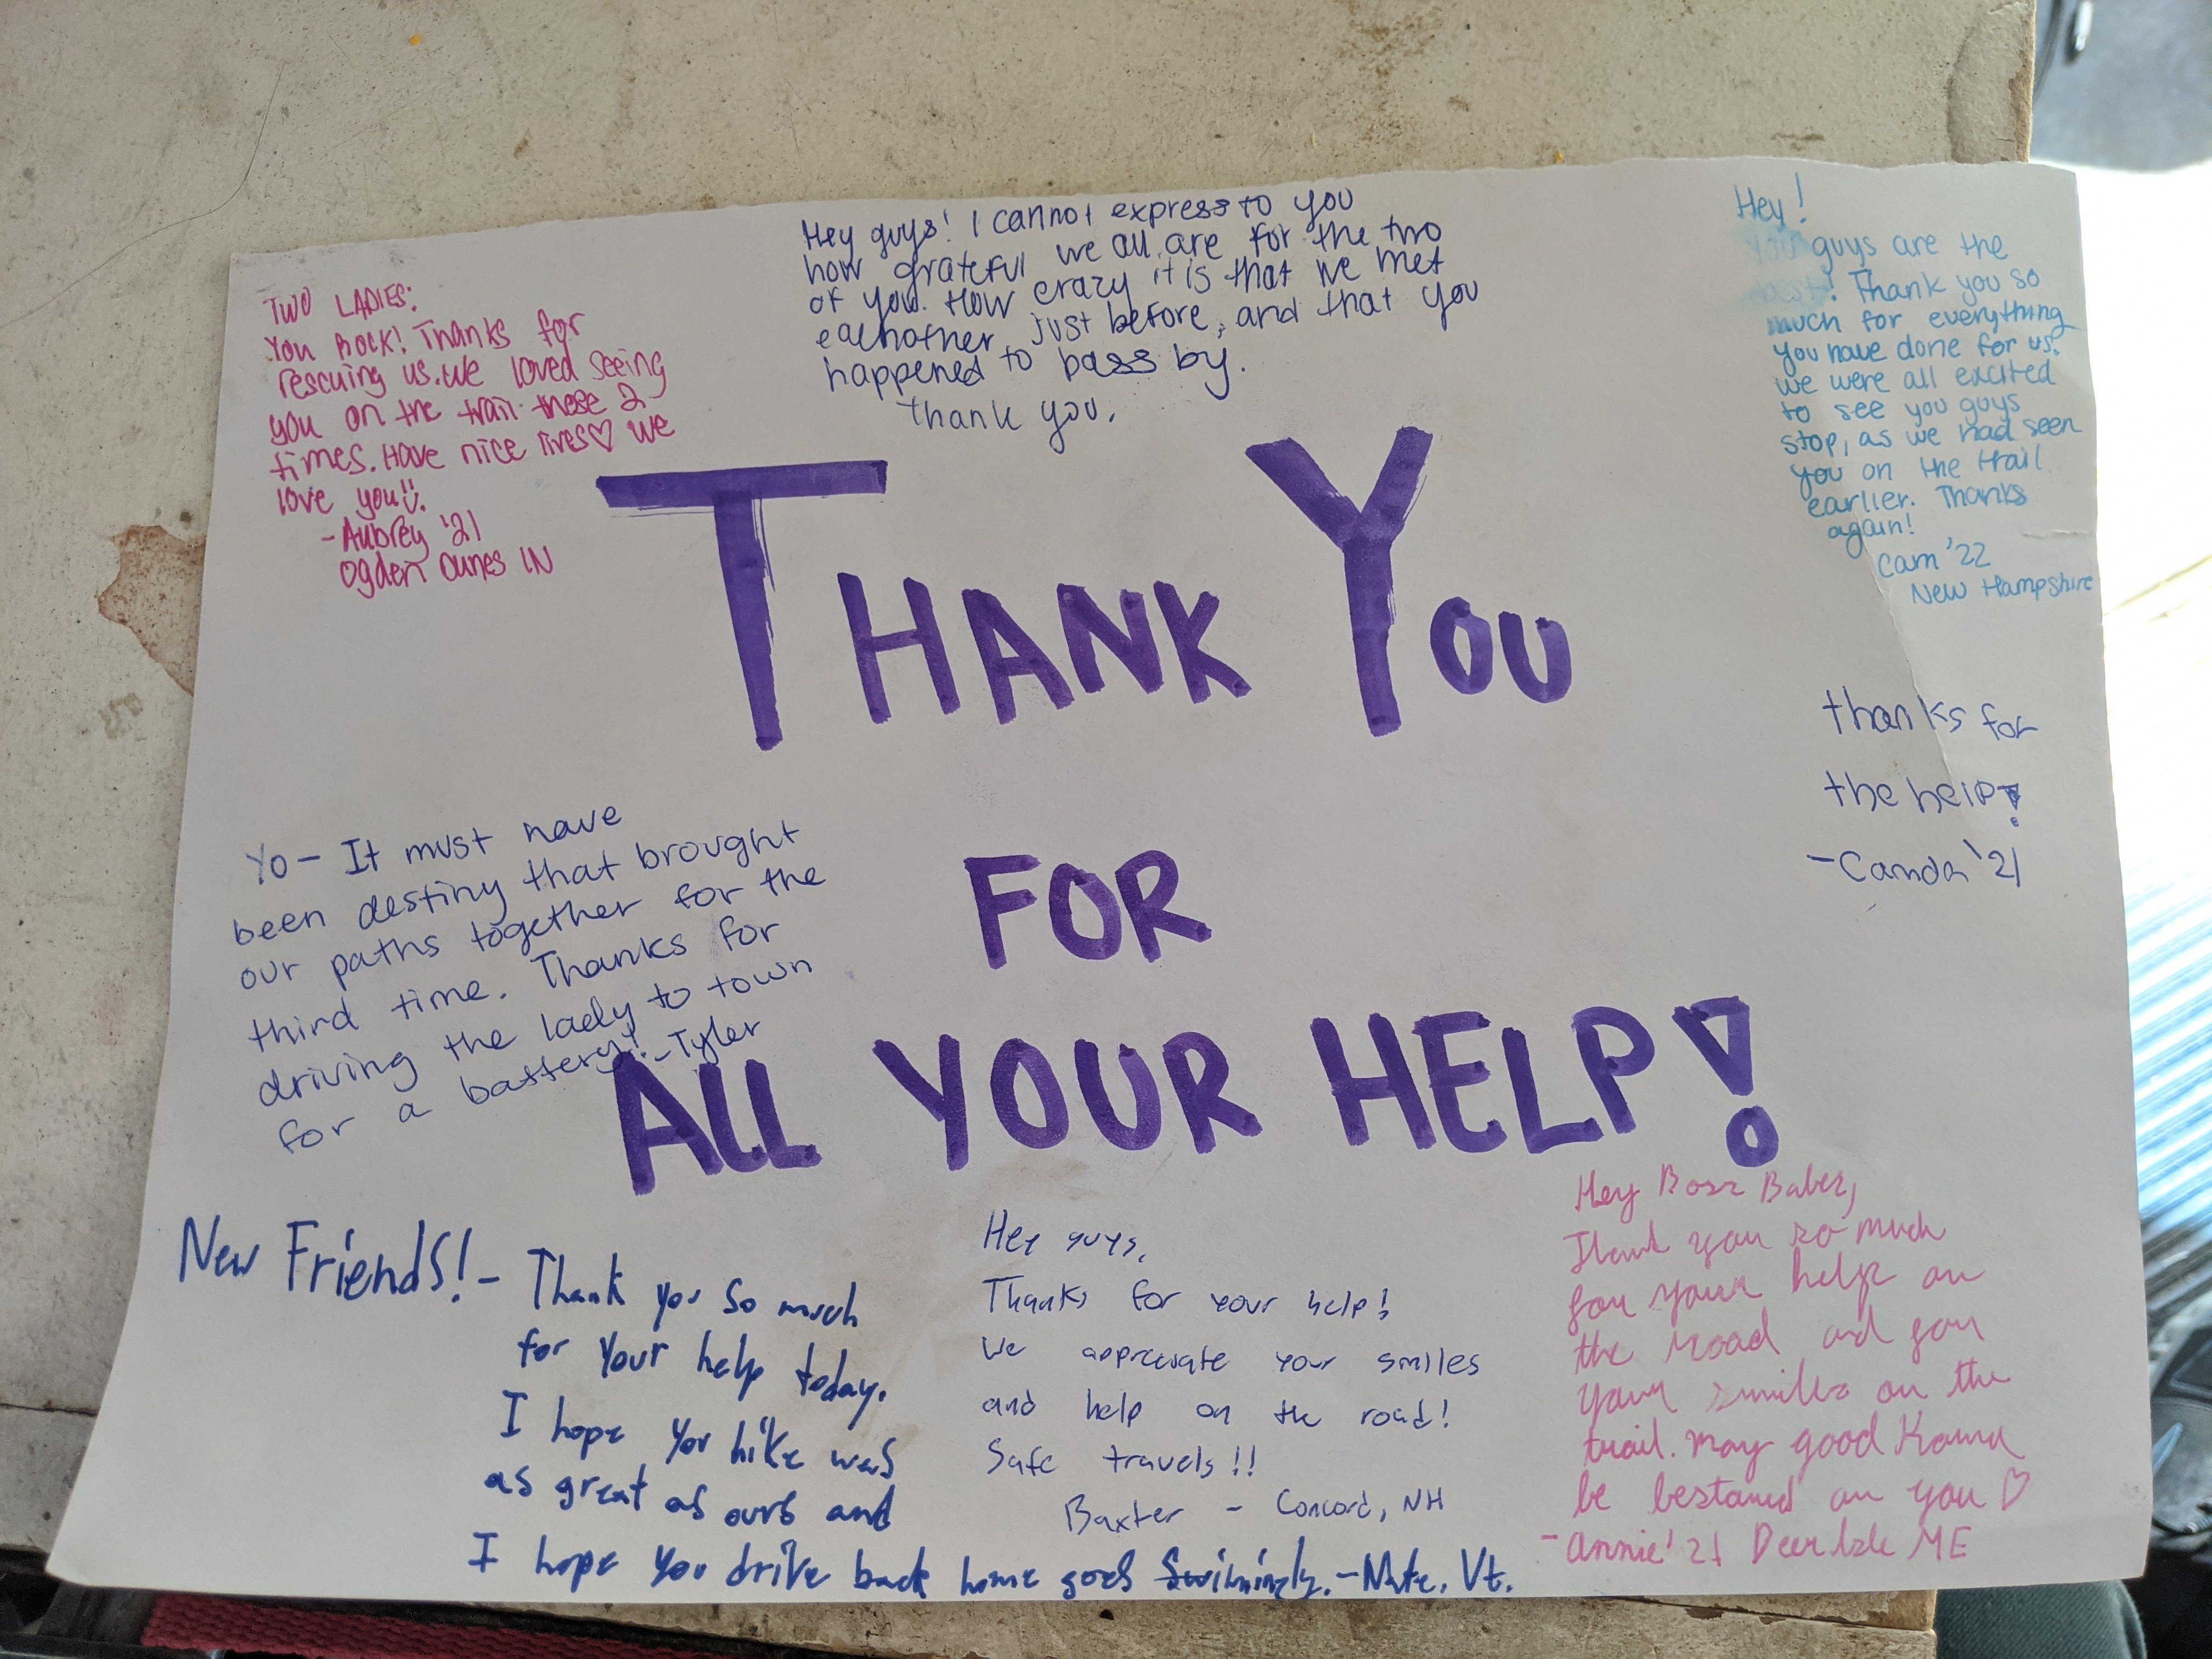 TWO LADIES:
You Rock! Thanks for
rescuing us. We loved seeing
you on the trail those 2
times. Have nice lives♡ we
love you!
-Aubrey '21
Ogden Dunes IN
Hey guys! I cannot express to you
how grateful we all are for the two
of you. How crazy it is that we met
eachother just before, and that you
happened to bass by.
thank you.
Hey!
You guys are the
best! Thank you so
much for everything
you have done for us.
we were all excited
to see you guys
stop, as we had seen
you on the trail
earlier. Thanks
again!
Cam '22
New Hampshire
THANK YOU
FOR
ALL YOUR HELP!
thanks for
the help!
- '21
Yo- It must have
been destiny that brought
our paths together for the
third time. Thanks for
driving the lady to town
for a battery! -Tyler
New Friends!- Thank you so much
for your help today.
I hope you hike was
as great as ours and
I hope you drive back home goes Swimingly. -Nate, Vt.
Hey guys,
Thanks for your help!
We appreciate your smiles
and help on the road!
Safe travels!!
Baxter - Concord, NH
Hey Boss Babes,
Thank you so much
for your help on
the road and for
your smiles on the
trail. may good Karma
be bestowed on you ♡
-Annie '21 Deer Isle ME